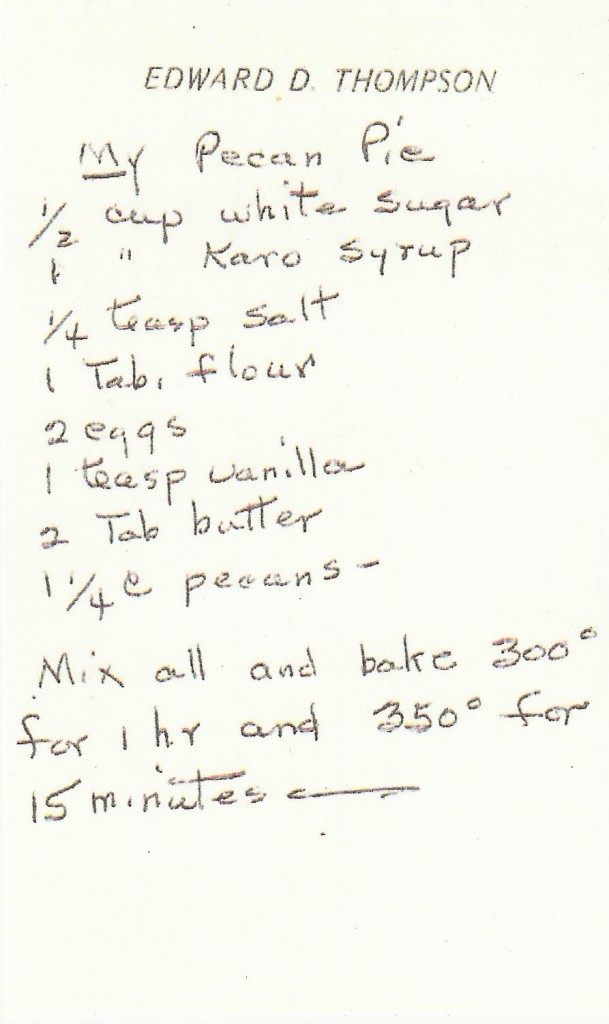 EDWARD D. THOMPSON
My Pecan Pie
1/2 cup white sugar
1 " Karo syrup
1/4 teasp salt
1 Tab. flour
2 eggs
1 teasp vanilla
2 Tab butter
1 1/4 c pecans -
Mix all and bake 300°
for 1 hr and 350° for
15 minutes